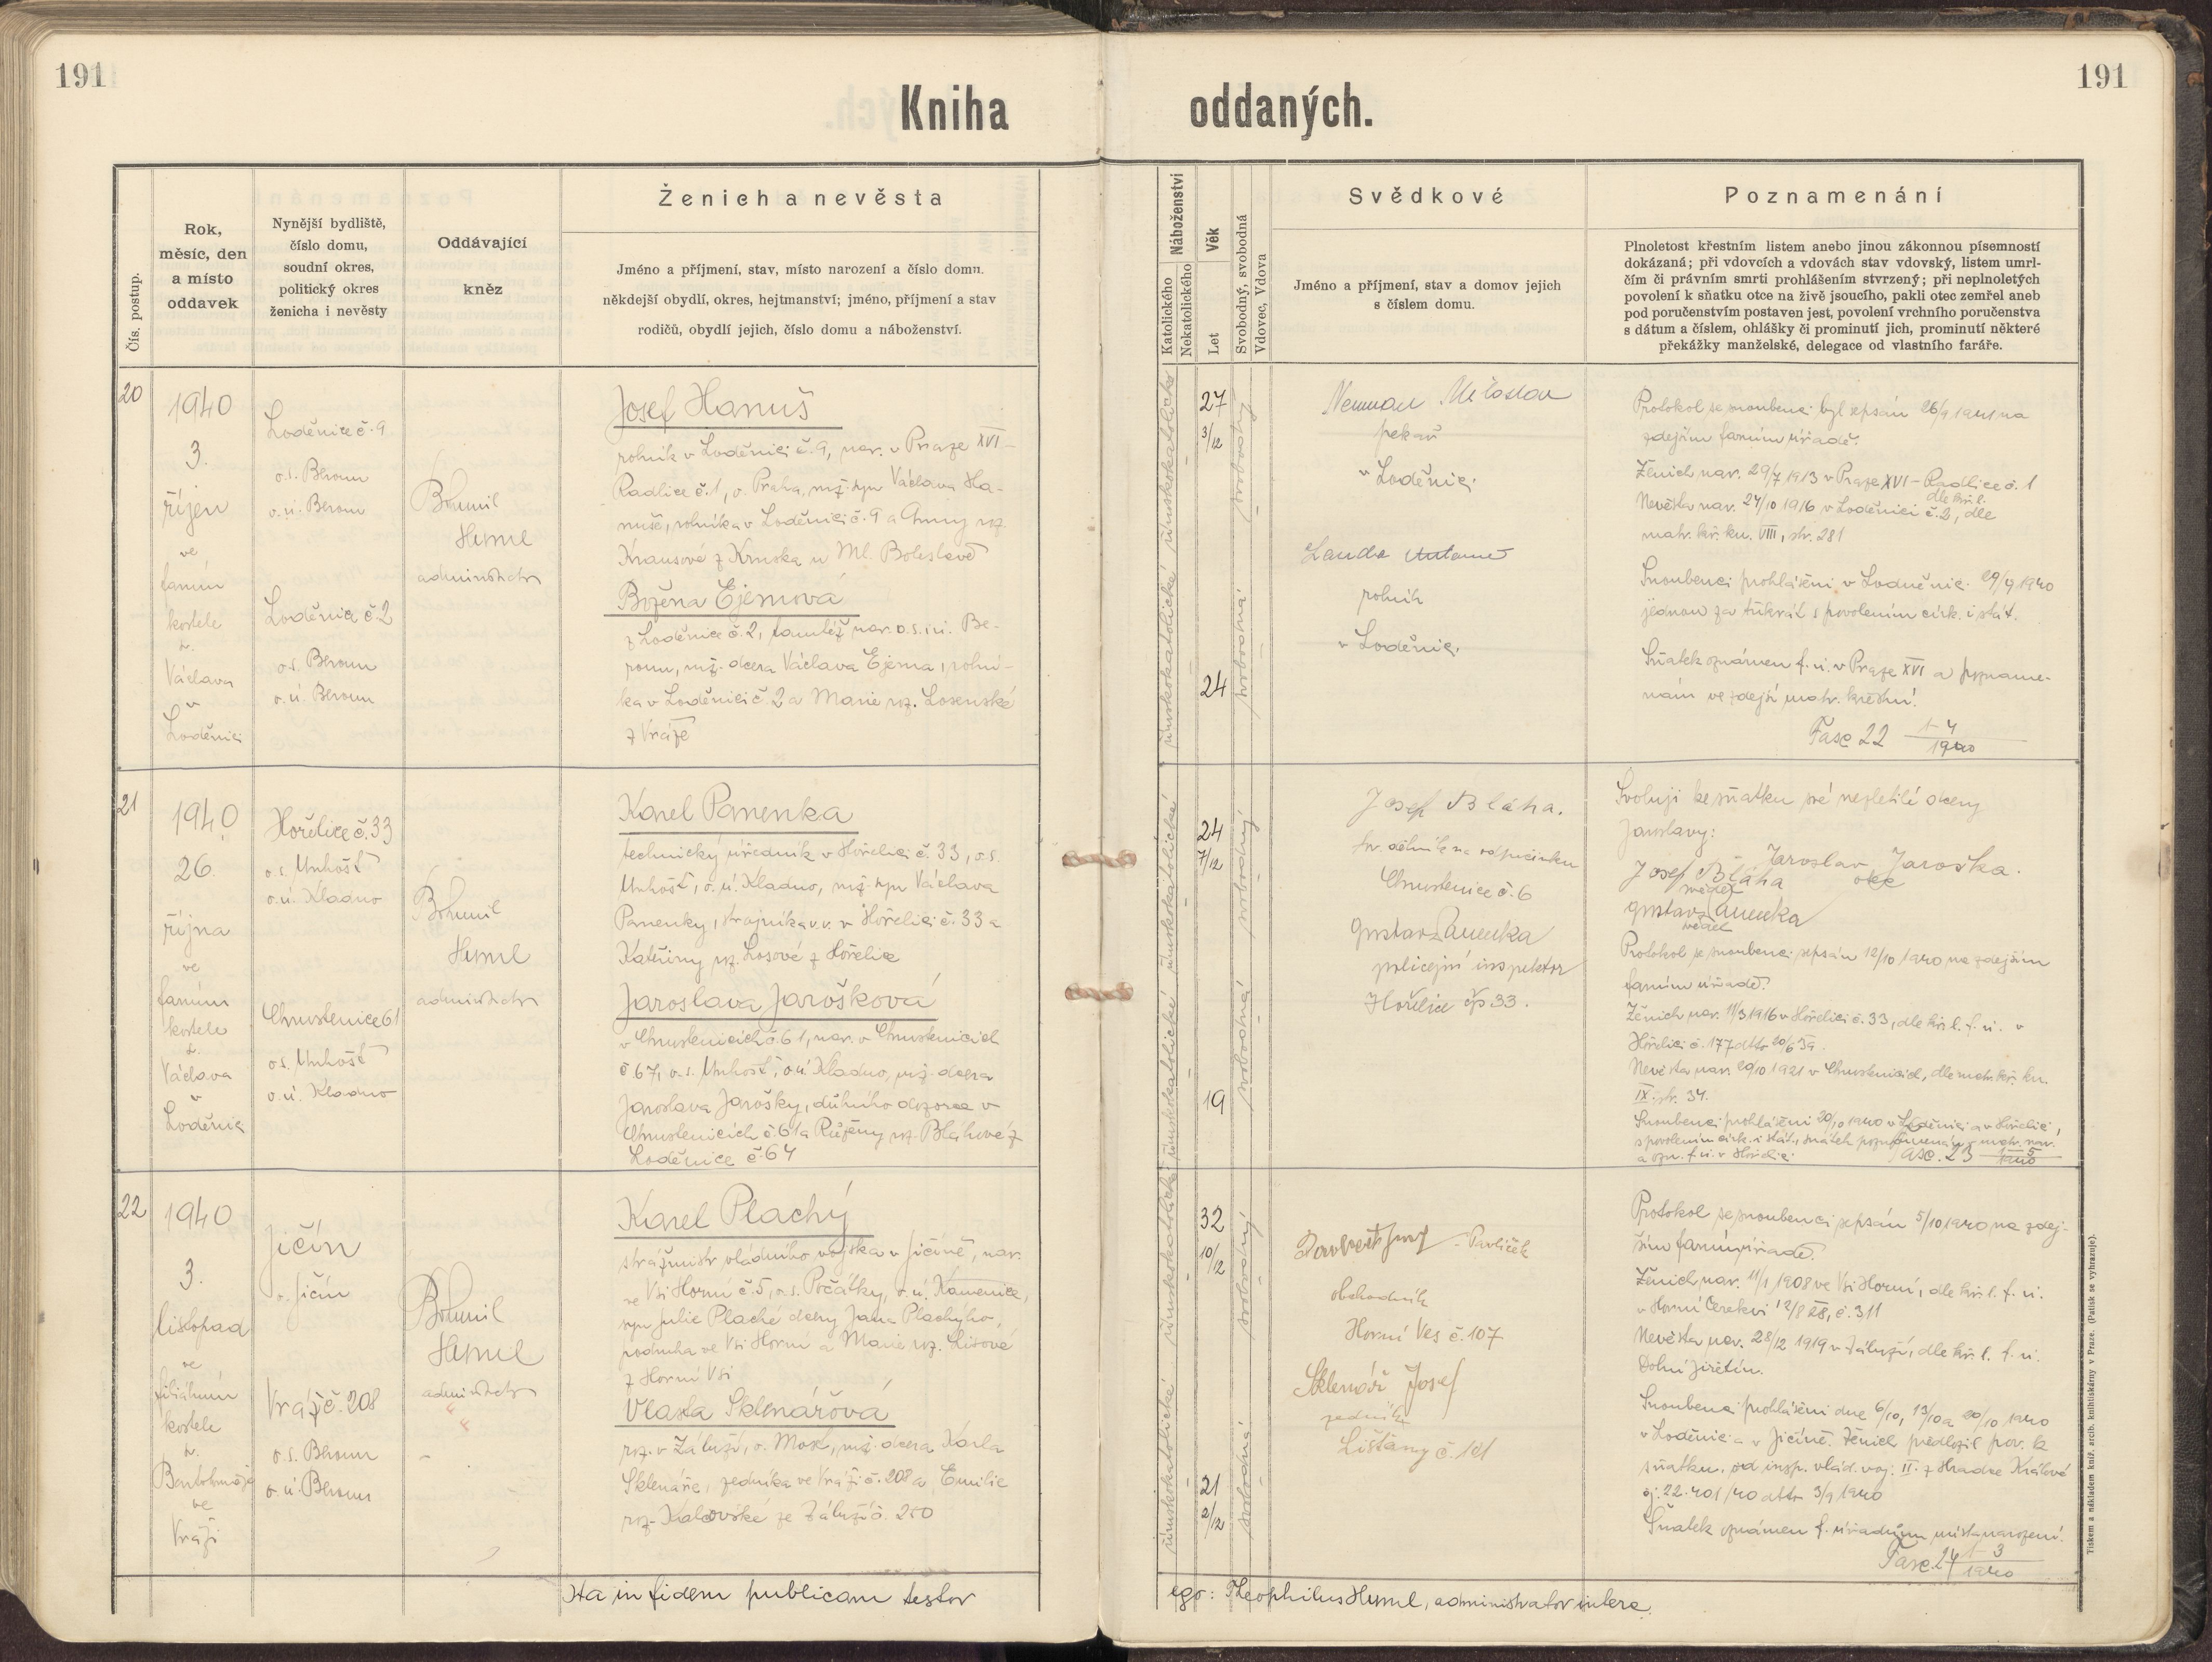 191
191
Kniha oddaných.
Čís. postup.
Rok,
měsíc, den
a místo
oddavek
Nynější bydliště,
číslo domu,
soudní okres,
politický okres
ženicha i nevěsty
Oddávající
kněz
Ženich a nevěsta
Jméno a příjmení, stav, místo narození a číslo domu.
někdejší obydlí, okres, hejtmanství; jméno, příjmení a stav
rodičů, obydlí jejich, číslo domu a náboženství.
Náboženství
Katolického
Nekatolického
Věk
Let
Svobodný, svobodná
Vdovec, Vdova
Svědkové
Jméno a příjmení, stav a domov jejich
s číslem domu.
Poznamenání
Plnoletost křestním listem anebo jinou zákonnou písemností
dokázaná; při vdovcích a vdovách stav vdovský, listem umrl-
čím či právním smrti prohlášením stvrzený; při neplnoletých
povolení k sňatku otce na živě jsoucího, pakli otec zemřel aneb
pod poručenstvím postaven jest, povolení vrchního poručenstva
s dátum a číslem, ohlášky či prominutí jich, prominutí některé
překážky manželské, delegace od vlastního faráře.
20
1940
3.
říjen
ve
farním
kostele
sv.
Václava
v
Loděnici
Loděnice č. 9
o.s. Beroun
o.ú. Beroun
Loděnice č 2
o.s. Beroun
o.ú. Beroun
Bohumil
Huml
administrátor
Josef Hanuš
rolník v Loděnici č. 9, nar. v Praze XVI –
Radlice č. 1, o. Praha, mž. syn Václava Ha-
nuše, rolníka v Loděnici č. 9 a Anny roz.
Krausové z Krnska u Ml. Boleslavě
Božena Ejemová
z Loděnice č. 2, tamtéž nar. o.s. i ú. Be-
roun, mž. dcera Václava Ejema, rolní-
ka v Loděnici č 2 a Marie roz. Losenské
z Vráže
římskokatolické římskokatolické
27
3/12
24
svobodný
svobodná
Neuman Miloslav
pekař
v Loděnici.
Landa Antonín
rolník
v Loděnici.
Protokol se snoubenci byl sepsán
zdejším farním úřadě.
Ženich nar. 29/7 1913 v Praze XVI – Radlice č. 1
dle kř. l.
Nevěsta nar. 24/10 1916 v Loděnici č. 2, dle
matr. kř. kn. VIII, str. 281
Snoubenci prohlášeni v Loděnici 29/9 1940
jednou za třikrát s povolením círk. i stát.
Sňatek oznámen f. ú. v Praze XVI a pozname-
nán ve zdejší matr. křestní!
Fasc 22 1–4/1940
21
1940
26.
října
ve
farním
kostele
sv.
Václava
v
Loděnici
Hořelice č. 33
o.s. Unhošť
o.ú. Kladno
Chrustenice 61
o.s. Unhošť
o.ú. Kladno
Bohumil
Huml
administrátor
Karel Panenka
technický úředník v Hořelici č. 33, o.s.
Unhošť, o. ú. Kladno, mž. syn Václava
Panenky, strojníka v.v. v Hořelici č. 33 a
Kateřiny roz. Losové z Hořelice
Jaroslava Jarošková
v Chrustenicích č. 61, nar. v Chrustenicích
č 67, o.s. Unhošť, o.ú Kladno, mž. dcera
Jaroslava Jarošky, důlního dozorce v
Chrustenicích č. 61 a Růženy roz. Bláhové z
Loděnice č. 64
římskokatolické římskokatolické
24
7/12
19
svobodný
svobodná
Josef Bláha.
tov. dělník na odpočinku
Chrustenice č. 6
Gustav Panenka
policejní inspektor
Hořelice čp 33.
Svoluji ke sňatku své nezletilé dcery
Jaroslavy:
Jaroslav Jaroška.
otec
Josef Bláha
svědek
Gustav Panenka
svědek
Protokol se snoubenci sepsán 12/10 1940 na zdejším
farním úřadě.
Ženich nar. 11/3 1916 v Hořelici č. 33, dle kř. l. f. ú. v
Hořelici č. 177 dtto 20/6 39.
Nevěsta nar. 20/10 1921 v Chrustenicích, dle matr. kř. kn.
IX. str. 34.
Snoubenci prohlášeni 20/10 1940 v Loděnici a v Hořelici,
s povolením círk. i stát., sňatek poznamenán v matr. nar.
a ozn. f. ú. v Hořelici. Fasc. 23 1–5/1940
22
1940
3.
listopad
ve
filiálním
kostele
sv.
Bartoloměje
ve
Vráži
Jičín
o. Jičín
Vráž č. 208
o.s. Beroun
o.ú. Beroun
Bohumil
Huml
administrátor
Karel Plachý
strážmistr vládního vojska v Jičíně, nar.
ve Vsi Horní č. 5, o.s. Počátky, o.ú. Kamenice,
syn Julie Plaché dcery Jana Plachýho,
podruha ve Vsi Horní a Marie roz. Lisové
z Horní Vsi
Vlasta Sklenářová
roz. v Záluží, o. Most, mž. dcera Karla
Sklenáře, zedníka ve Vráži č. 208 a Emilie
roz. Kalcovské ze Záluží č. 250
římskokatolické římskokatolické
32
10/12
21
2/12
svobodný
svobodná
Pavlíček
obchodník
Horní Ves č. 107
Sklenář Josef
zedník
Lišťany č. 101
Protokol se snoubenci sepsán 5/10 1940 na zdej-
ším farním úřadě.
Ženich nar. 11/1 1908 ve Vsi Horní, dle kř. l. f. ú.
v Horní Cerekvi 12/8 28, č. 311
Nevěsta nar. 28/12 1919 v Záluží, dle kř. l. f. ú.
Dolní Jiřetín.
Snoubenci prohlášeni dne 6/10, 13/10 a 20/10 1940
v Loděnici a v Jičíně. Ženich předložil pov. k
sňatku, od insp. vlád. voj. II. z Hradce Králové
čj: 22.401/40 dtto 3/9 1940
Sňatek oznámen f. úřadům místa narození.
Fasc. 24 1–3/1940
Ita in fidem publicam testor
ego: Theophilus Huml, administrator intere.
Tiskem a nákladem kníž. arcib. knihtiskárny v Praze. (Patisk se vyhrazuje).